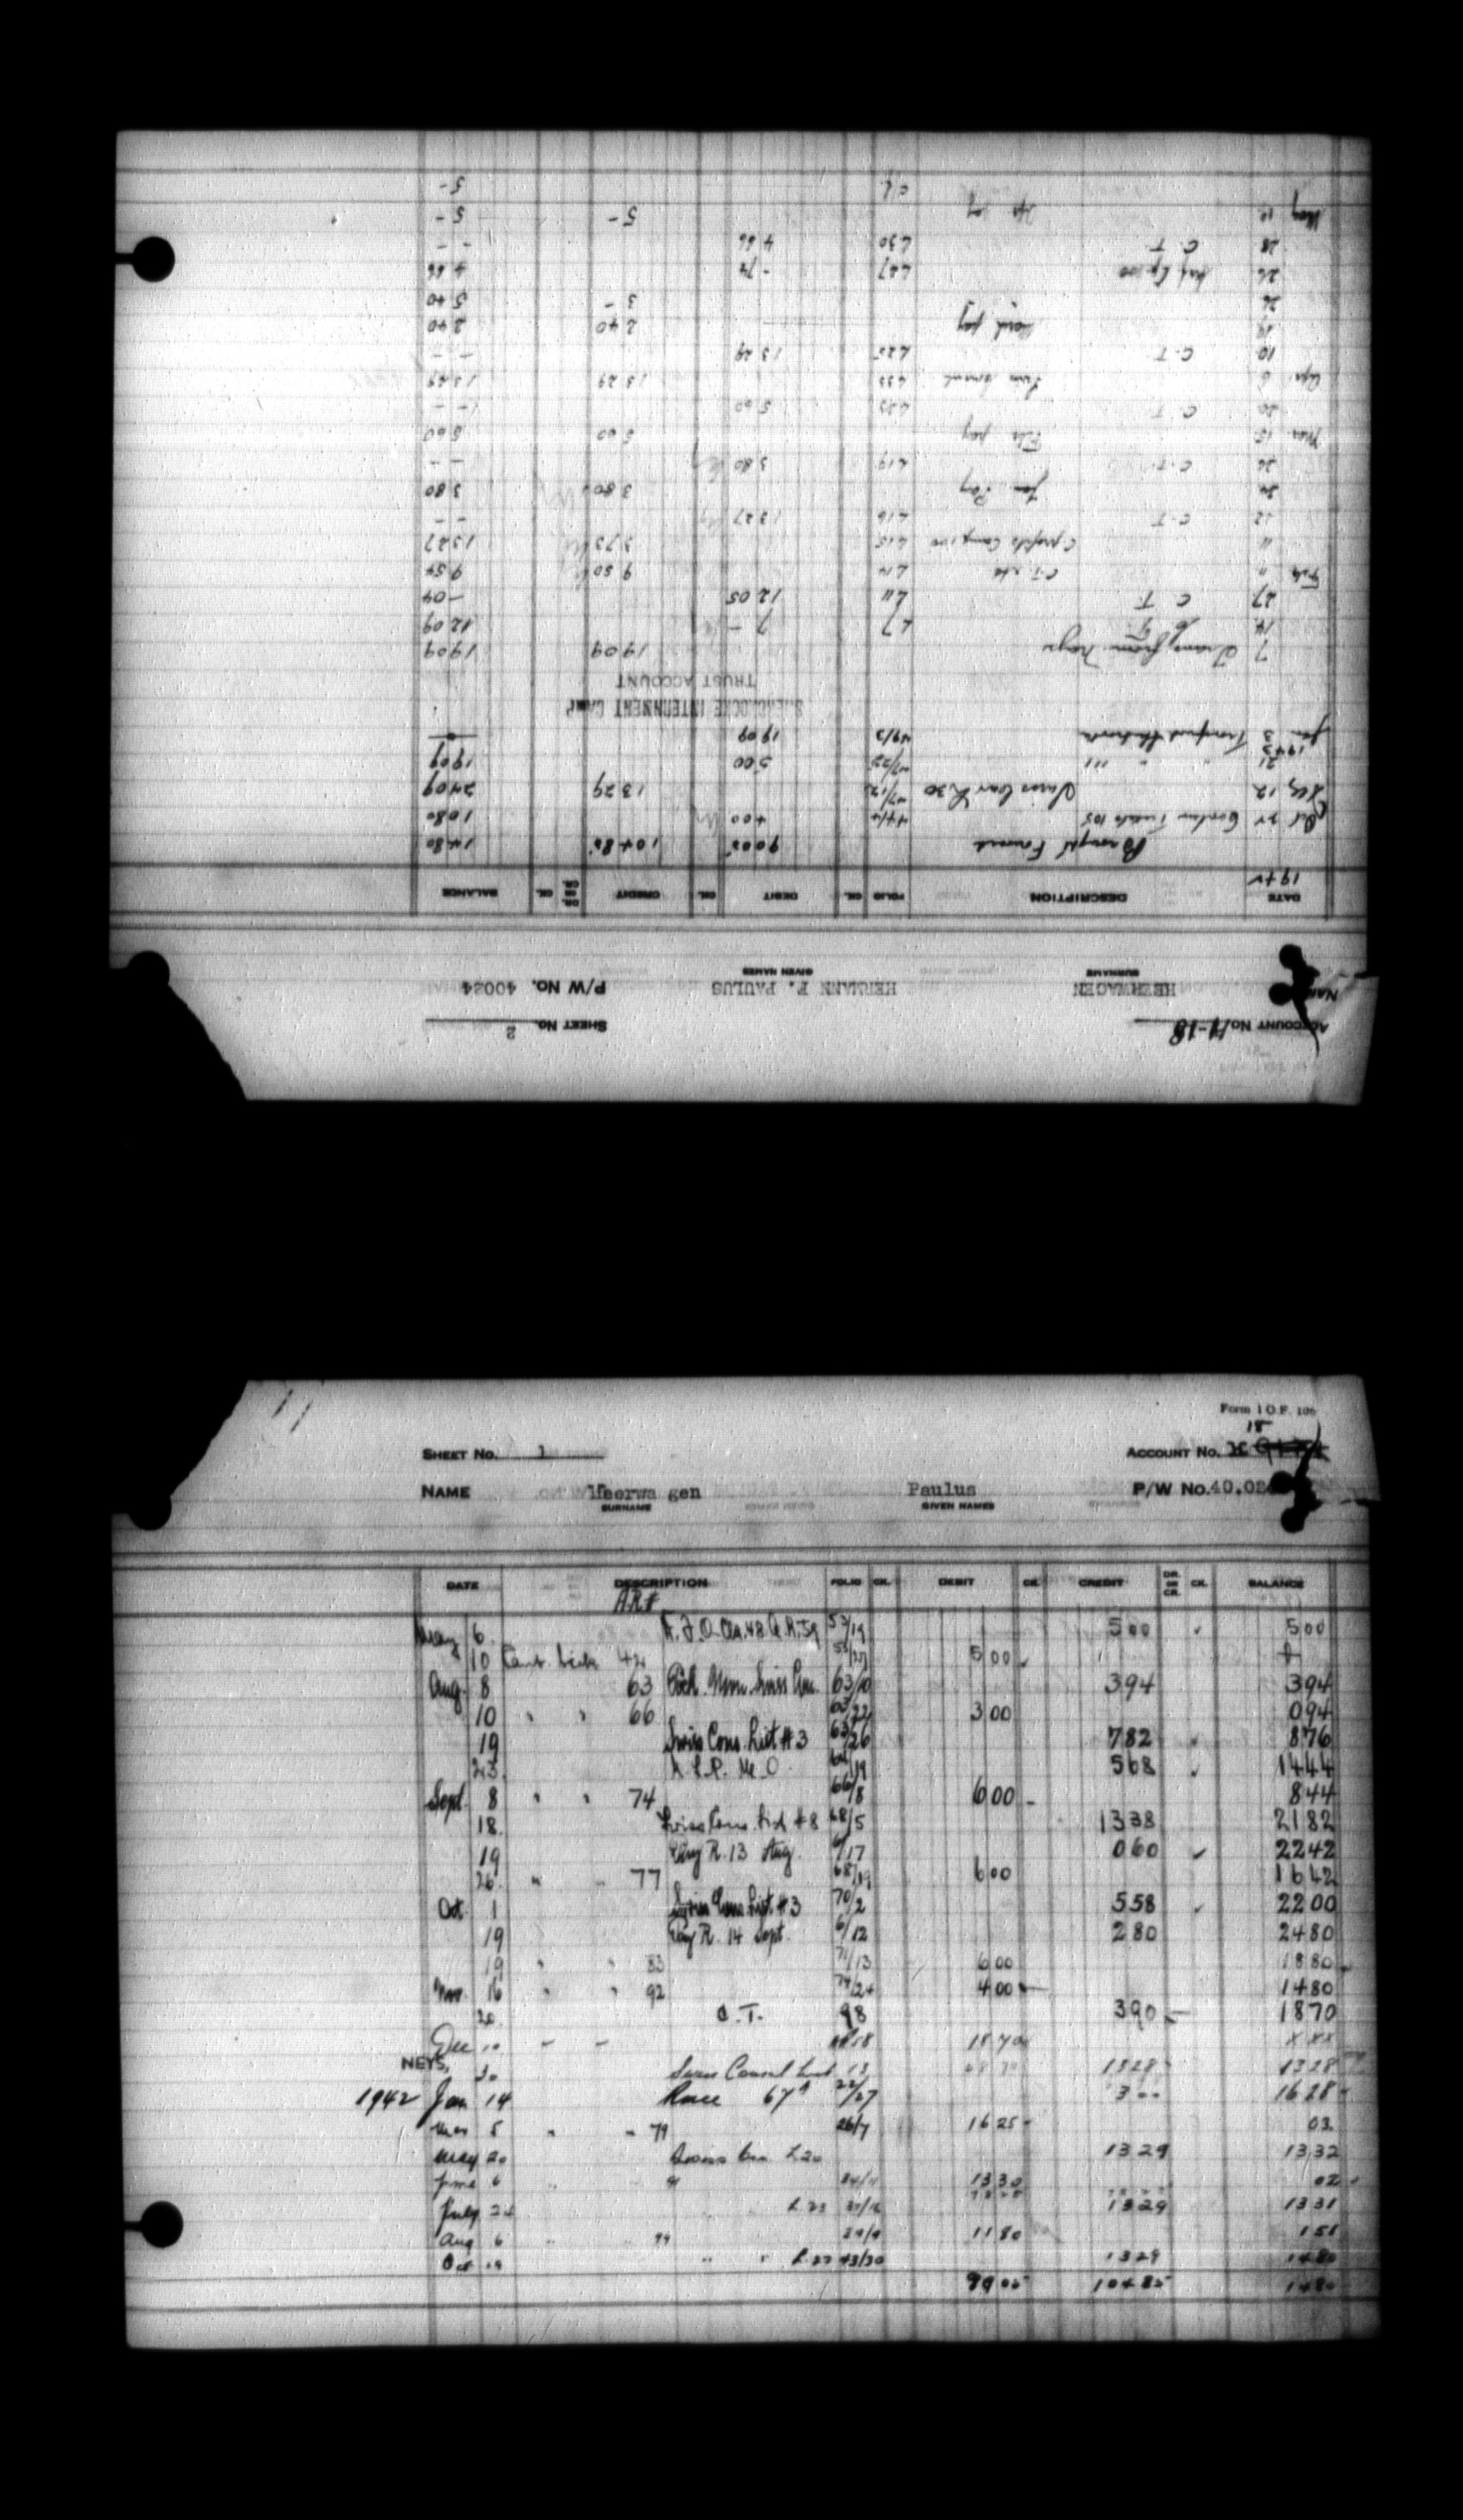 ACCOUNT No. H-18 SHEET No. 2
NAME HEERWAGEN HERMANN F. PAULUS P/W No. 40024
SURNAME GIVEN NAMES
DATE DESCRIPTION FOLIO CK. DEBIT CK. CREDIT DR. OR CR. CK. BALANCE
1942
Brought Forward 90 05 104 85 14 80
Oct 22 Canteen Tickets 105 44/4 4 00 10 80
12 Swiss Cons L.30 47/12 13 29 24 09
21 " " 111 47/22 5 00 19 09
1943
Jan 3 49/3 19 09
SHERBROOKE INTERNMENT CAMP
TRUST ACCOUNT
7 Trans from Neys 19 09 19 09
14 L7 7 - 12 09
27 C T L11 12 05 - 04
Feb L14 9 50 9 54
11 C profits Camp 100 L15 3 73 13 27
12 C.T. L16 13 27 - -
24 Jan Pay 3 80 3 80
26 C.T. L19 3 80 - -
Mar 15 Feb pay 5 60 5 60
20 C T L23 5 60 - -
Apr 6 L23 13 29 13 29
10 C.T. L25 13 29 - -
19 March pay 2 40 2 40
3 - 5 40
26 L27 - 74 4 66
28 C T L30 4 66 - -
May 12 Ap pay 5 - 5 -
c/f 5 -
Form I.O.F. 106
18
SHEET No. 1 ACCOUNT No.
NAME Heerwagen Paulus P/W No. 40.02
SURNAME GIVEN NAMES
DATE DESCRIPTION FOLIO CK. DEBIT CK. CREDIT DR. OR CR. CK. BALANCE
A.R#
May 6 53/19 5 00 5 00
10 Cant. tick 42 5 00
Aug. 8 63 Swiss Con. 63/10 3 94 3 94
10 " " 66 63/22 3 00 0 94
19 Swiss Cons. List #3 63/26 7 82 8 76
23 64/19 5 68 14 44
Sept. 8 " " 74 66/8 6 00 - 8 44
18 Swiss Cons. List #8 68/5 13 38 21 82
19 Pay R. 13 Aug. 6/17 0 60 22 42
26 " " 77 68/19 6 00 16 42
Oct 1 Swiss Cons. List #3 70/2 5 58 22 00
19 Pay R. 14 Sept. 6/12 2 80 24 80
19 " " 83 71/13 6 00 18 80
Nov. 16 " " 92 74/24 4 00 14 80
20 C.T. 98 3 90 18 70
Dec 10 - - 18 70 x xx
NEYS.
30 Swiss Consul List 13 13 28 13 28
1942 Jan 14 Race 67A 22/27 3 00 16 28
Mar 5 " " 79 26/7 16 25 03
May 20 Swiss Con L20 13 29 13 32
June 6 " 91 34/11 13 30 02
July 24 L 23 37/16 13 29 13 31
Aug 6 " " 99 39/9 11 80 1 51
Oct 19 " " L 27 43/30 13 29 14 80
90 05 104 85 14 80